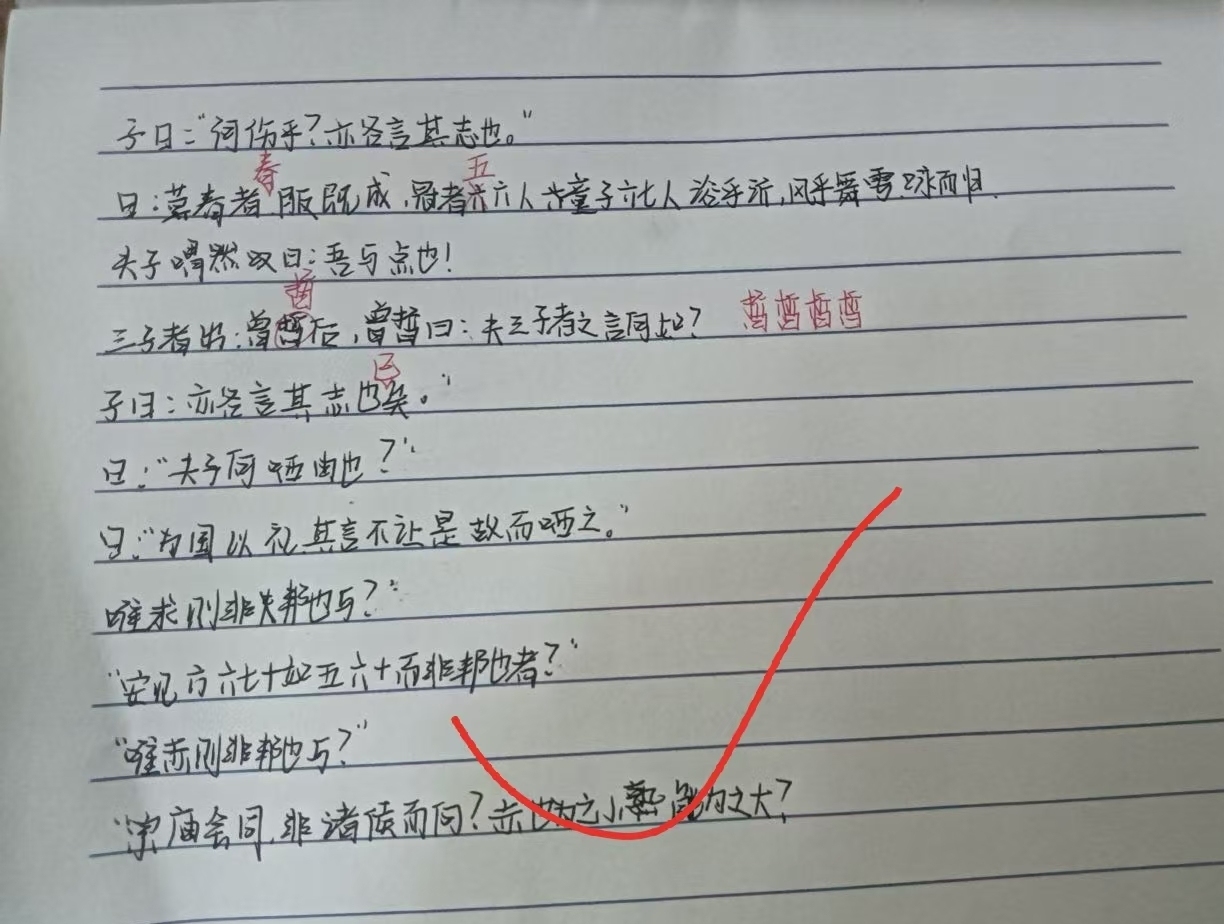 子曰:"何伤乎?亦各言其志也。"
春 五
曰:暮春者服既成,冠者六人童子六七人浴乎沂,风乎舞雩,咏而归.
夫子喟然叹曰:吾与点也!
皙
三子者出:曾皙后,曾皙曰:夫三子者之言何如? 皙皙皙皙
已
子曰:亦各言其志也矣。"
曰:"夫子何哂由也?"
曰:"为国以礼,其言不让是故而哂之。"
唯求则非邦也与?"
"安见方六七十如五六十而非邦也者?"
"唯赤则非邦也与?"
"宗庙会同,非诸侯而何?赤也为之小,孰能为之大?